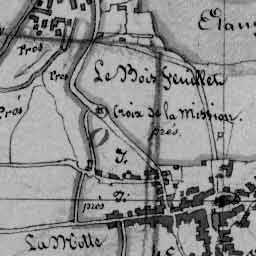 Etang
Prés
Le Bois Feuillet
Prés
Prés
Croix de la Mission.
prés
J.
J.
prés
La Motte